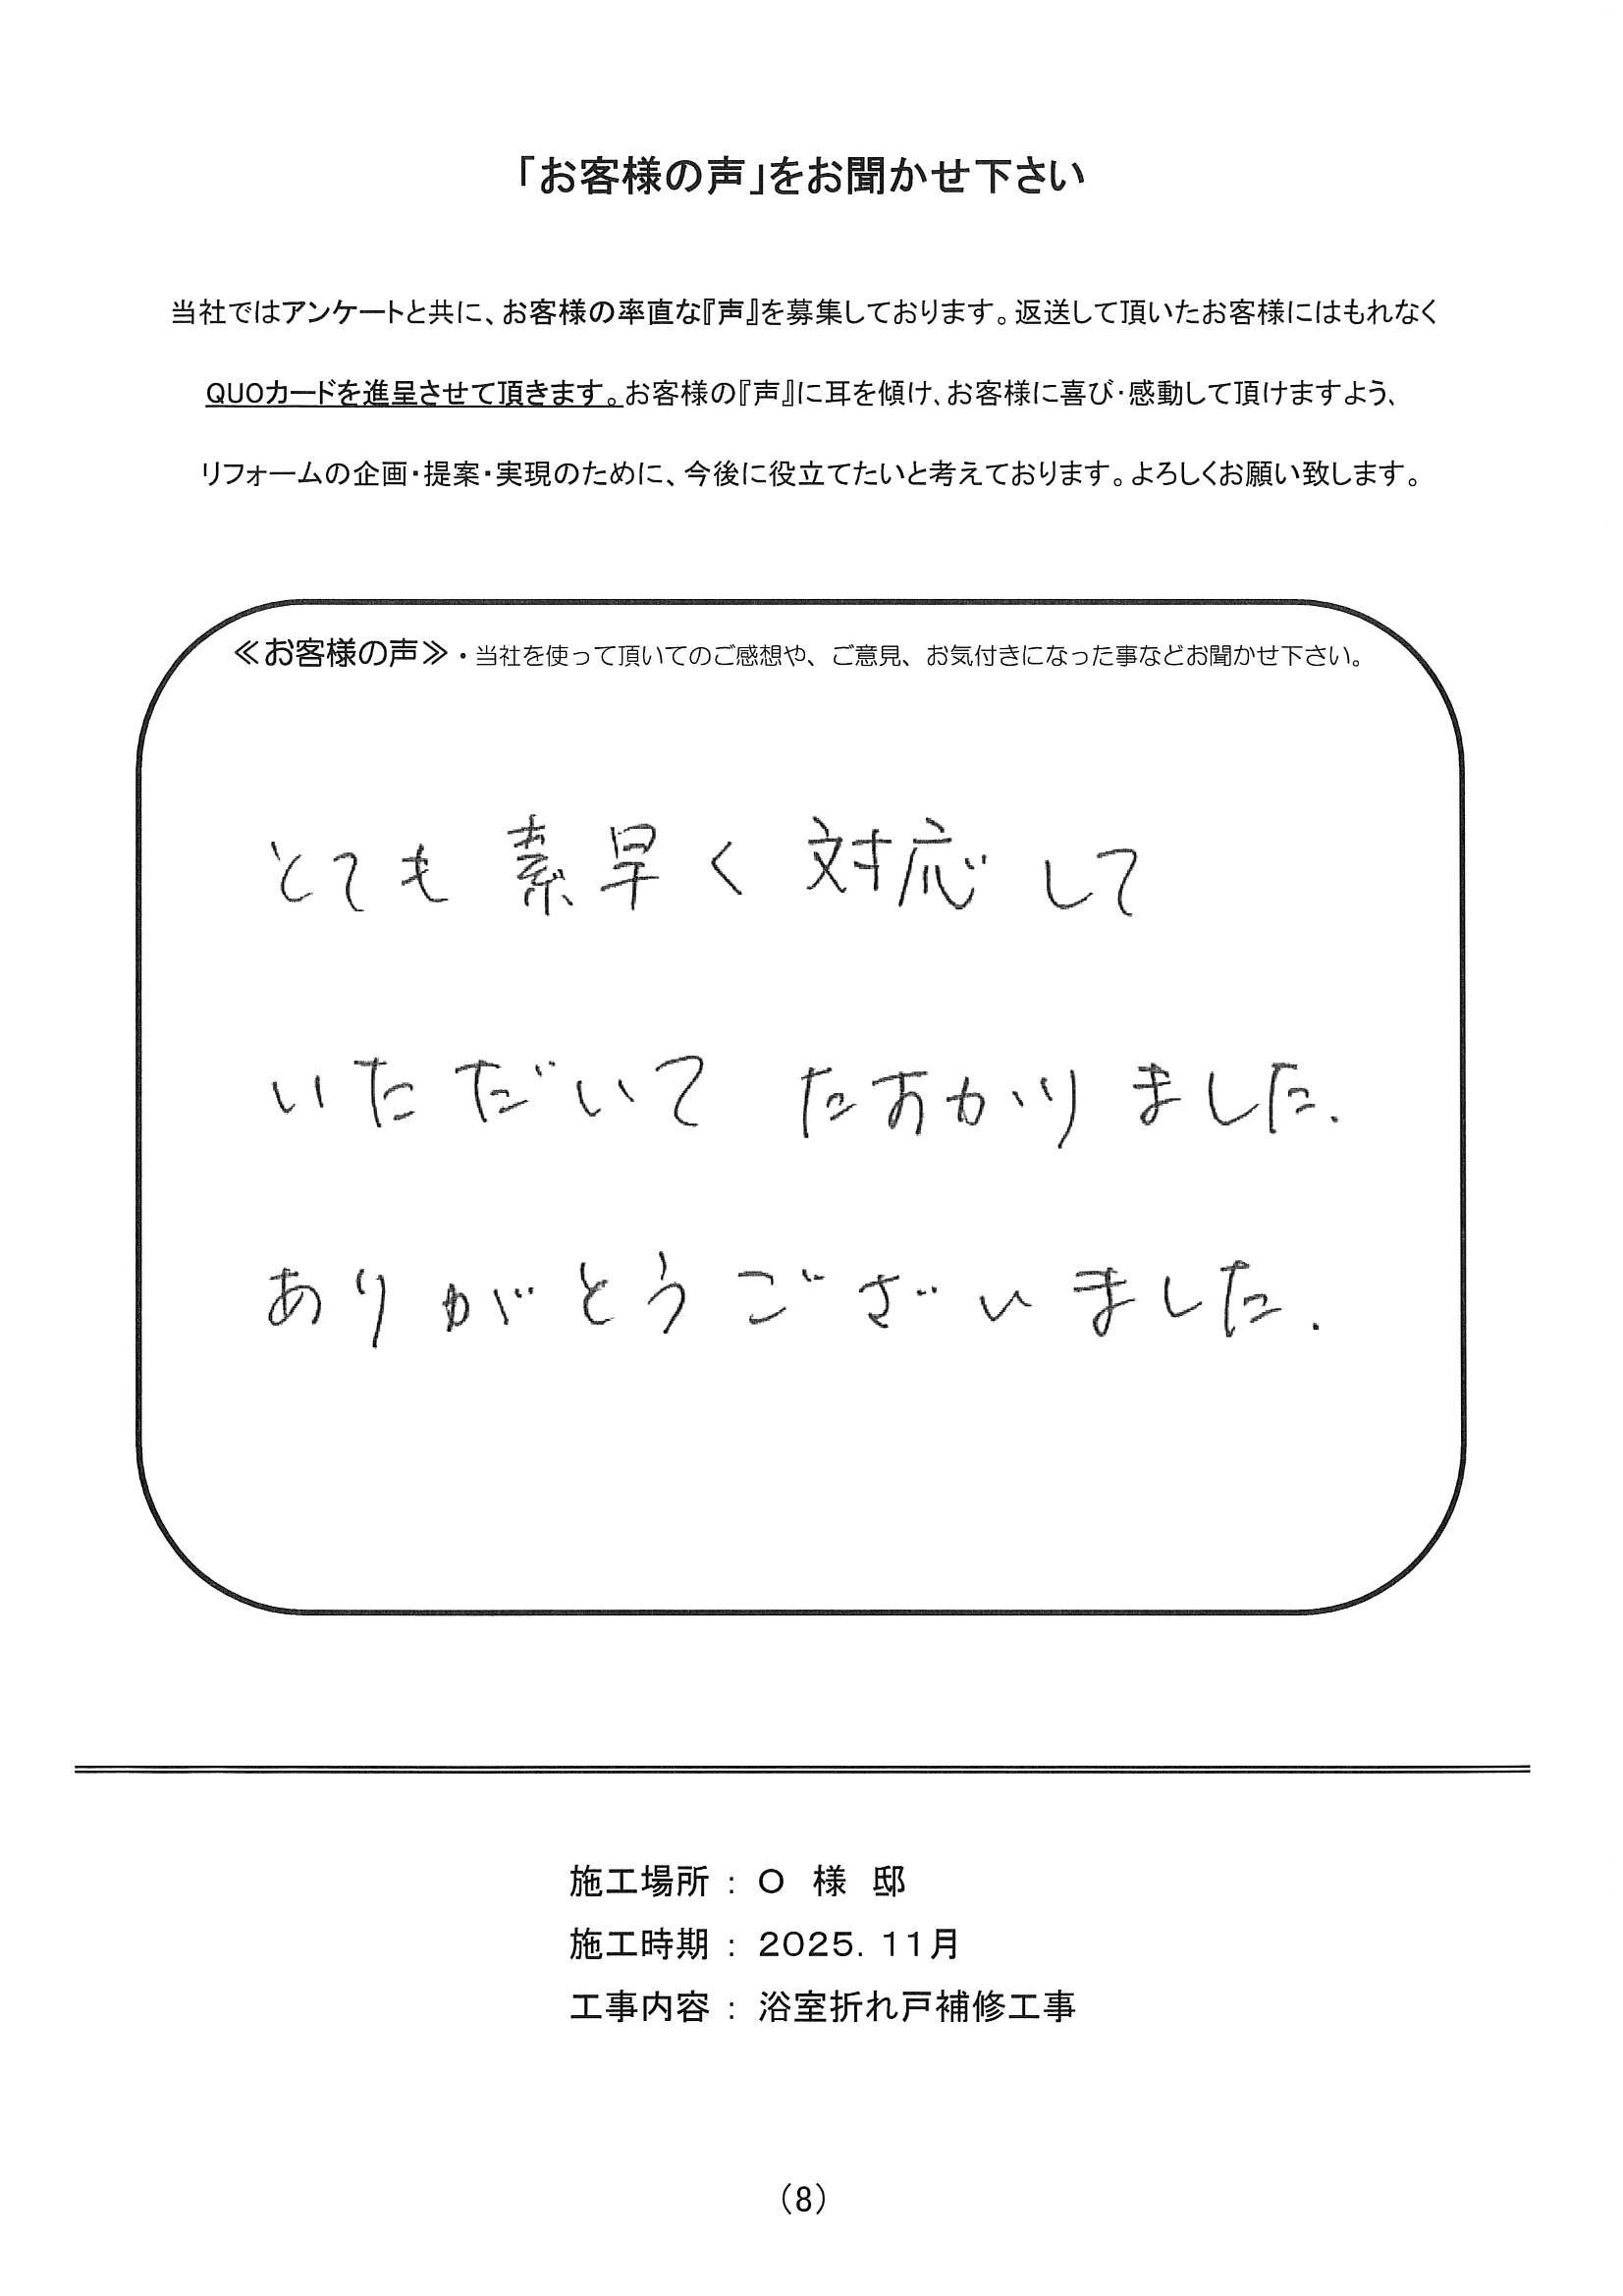 「お客様の声」をお聞かせ下さい
当社ではアンケートと共に、お客様の率直な『声』を募集しております。返送して頂いたお客様にはもれなく
QUOカードを進呈させて頂きます。お客様の『声』に耳を傾け、お客様に喜び・感動して頂けますよう、
リフォームの企画・提案・実現のために、今後に役立てたいと考えております。よろしくお願い致します。
≪お客様の声≫・当社を使って頂いてのご感想や、ご意見、お気付きになった事などお聞かせ下さい。
とても素早く対応して
いただいて たすかりました.
ありがとうございました.
施工場所 : O 様 邸
施工時期 : 2025. 11月
工事内容 : 浴室折れ戸補修工事
(8)